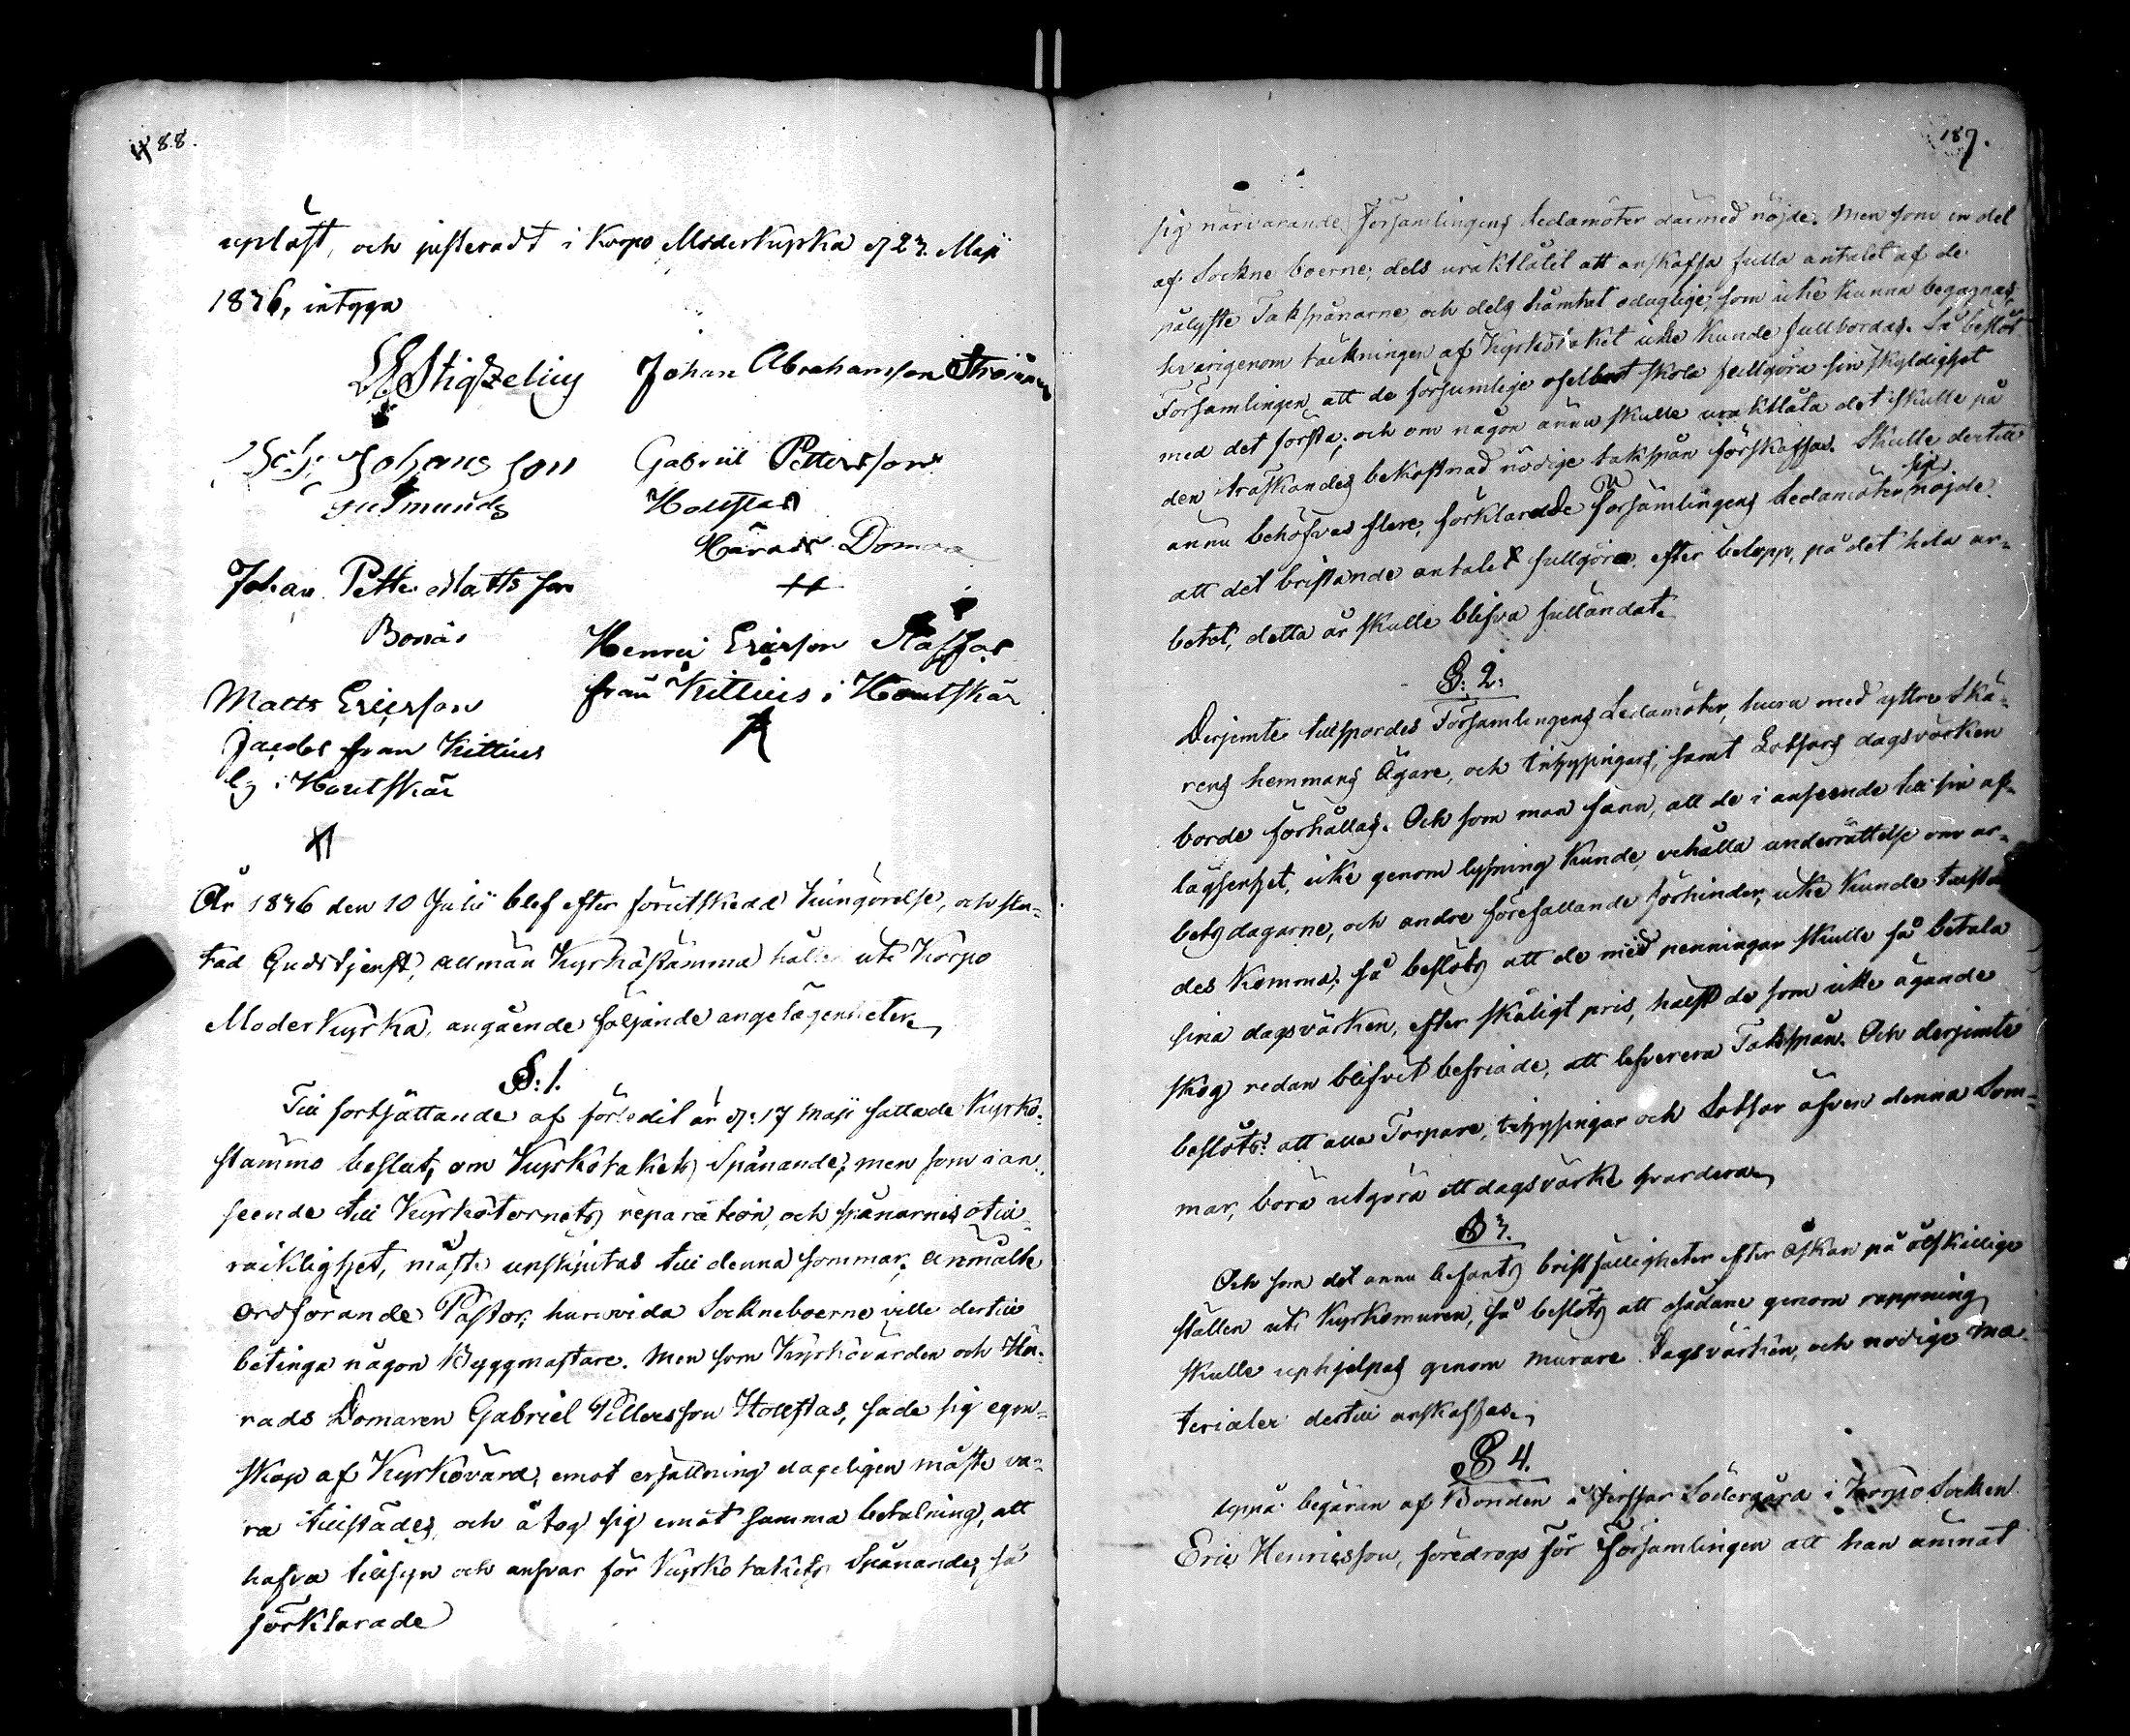 188.
upläst, och justeradt i Korpo Moderkyrka d 23. Maji
1836, intyga
Stigzelius Johan Abrahamsson
Johansson Gabriel Pettersson
Gutmunds Hollstas
Härads Domare
Johan Petter Mattsson
Bonäs
Henric Ericsson Staffas
Matts Ericsson från Kittuis i Houtskär
Jacobs från Kittuis
by i Houtskär
År 1836 den 10 Julii blef efter förutskedd kungörelse, och slu-
tad Gudstjenst, allmän Kyrkostämma hållen uti Korpo
Moderkyrka, angående följande angelägenheter
§: 1.
Till fortsättande af förledit år d: 17 Maji fattade Kyrko-
stämmo beslut, om Kyrkotakets Spånande; men som i an-
seende till Kyrkotornets reparation, och spånarnes otill-
räcklighet, måste upskjutas till denna sommar; anmälte
ordförande Pastor, huruvida Sockneboerne ville dertill
betinga någon Byggmästare. Men som Kyrkovärden och Hä-
rads Domaren Gabriel Pettersson Hollstas, sade sig egen-
skap af Kyrkovärd, emot ersättning dageligen måste va-
ra tillstädes, och åtog sig emot samma betalning, att
hafva tillsyn och ansvar för Kyrkotakets Spånande, så
förklarade
189.
sig närvarande Församlingens Ledamöter därmed nöjde. Men som en del
af Sockneboerne, dels uraktlåtit att anskaffa fulla antalet af de
pålyste Takspånarne, och dels hämtat odaglige, som icke kunna begagnas,
hvarigenom täckningen af Kyrkotaket icke kunde fullbordas. Så beslöt
Församlingen, att de försumlige ofelbart skola fullgöra sin skyldighet
med det första; och om någon ännu skulle uraktlåta det, skulle på
den tredskandes bekostnad nödige takspån förskaffas. Skulle dertill
ännu behöfvas flere, förklarade Församlingens Ledamöter sig nöjde
att det bristande antalet fullgöra, efter belopp, på det hela ar-
betet, detta år skulle blifva fulländat.
§: 2:
Derjemte tillspordes Församlingens Ledamöter, huru med yttre Skä-
rens hemmans Ägare, och inhysingars, samt Lotsars dagsvärken
borde förhållas. Och som man fann, att de i anseende till sin af-
lägsenhet, icke genom lysning kunde erhålla underrättelse om ar-
bets dagarne, och andre förefallande förhinder, icke kunde tillstä-
des komma; så beslöts att de med penningar skulle få betala
sina dagsvärken, efter skäligt pris, hälst de som icke ägande
skog redan blifvit befriade, att lefverera Takspån. Och derjemte
beslöts: att alla Torpare, inhysingar och Lotsar äfven denna Som-
mar, böra utgöra ett dagsvärke hvardera
§ 3.
Och som det ännu befants bristfälligheter efter åskan på åtskillige
ställen uti Kyrkomuren, så beslöts att sådane genom rappning
skulle uphjelpas genom murare dagsvärken, och nödige ma-
terialer dertill anskaffas.
§ 4.
uppå begäran af Bonden å Södergård i Korpo Socken
Eric Henricsson, föredrogs för Församlingen att han ämnat